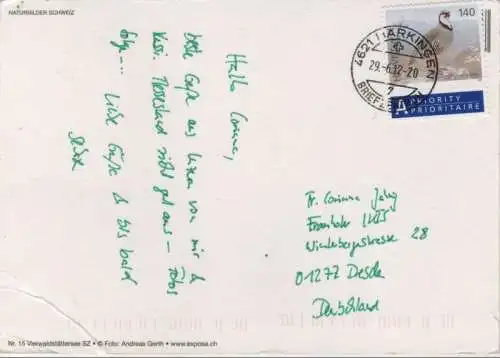 NATURBILDER SCHWEIZ
Hallo Corinna,
beste Grüße aus Luzern von mir &
Kissi. Messestand sieht gut aus – Fotos
folge... Liebe Grüße & bis bald
140
4621 HÄRKINGEN
29.-6.12-20
7
BRIEFZE
A PRIORITY
PRIORITAIRE
Fr. Corinna
Fraunhofer IKTS
Winterbergstrasse 28
01277 Dresden
Deutschland
Nr. 15 Vierwaldstättersee SZ • © Foto: Andreas Gerth • www.exposa.ch